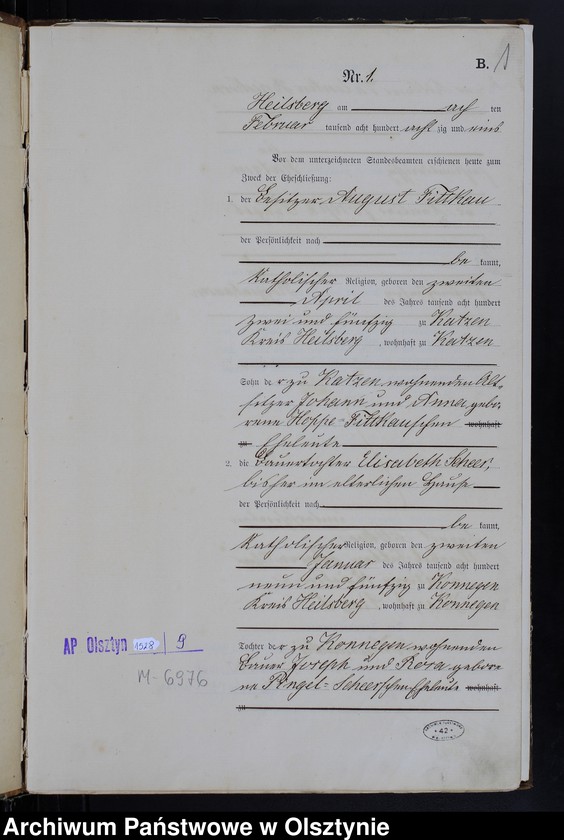 B. 1
Nr. 1.
Heilsberg am acht ten
Februar tausend acht hundert acht zig und eins
Vor dem unterzeichneten Standesbeamten erschienen heute zum
Zweck der Eheschließung:
1. der Besitzer August Fittkau
der Persönlichkeit nach
be kannt,
katholischer Religion, geboren den zweiten
April des Jahres tausend acht hundert
zwei und fünfzig zu Katzen
Kreis Heilsberg, wohnhaft zu Katzen
Sohn der zu Katzen wohnenden Alt-
sitzer Johann und Anna gebo-
rene Hoppe-Fittkauschen wohnhaft
zu Eheleute
2. die Bauertochter Elisabeth Scheer,
bisher im elterlichen Hause
der Persönlichkeit nach
be kannt,
katholischer Religion, geboren den zweiten
Januar des Jahres tausend acht hundert
neun und fünfzig zu Konnegen
Kreis Heilsberg, wohnhaft zu Konnegen
AP Olsztyn 1528 / 9
M-6976
Tochter der zu Konnegen wohnenden
Bauer Joseph und Rosa gebore
ne Pingel-Scheerschen Eheleute wohnhaft
zu
*42*
Archiwum Państwowe w Olsztynie